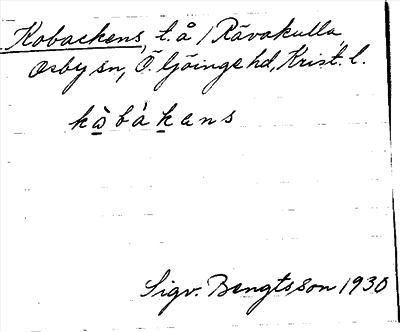 Kobackens, t. å / Rävakulla,
Osby sn, Ö. Göinge hd, Krist. l.
kòbákens
Sigv. Bengtsson 1930